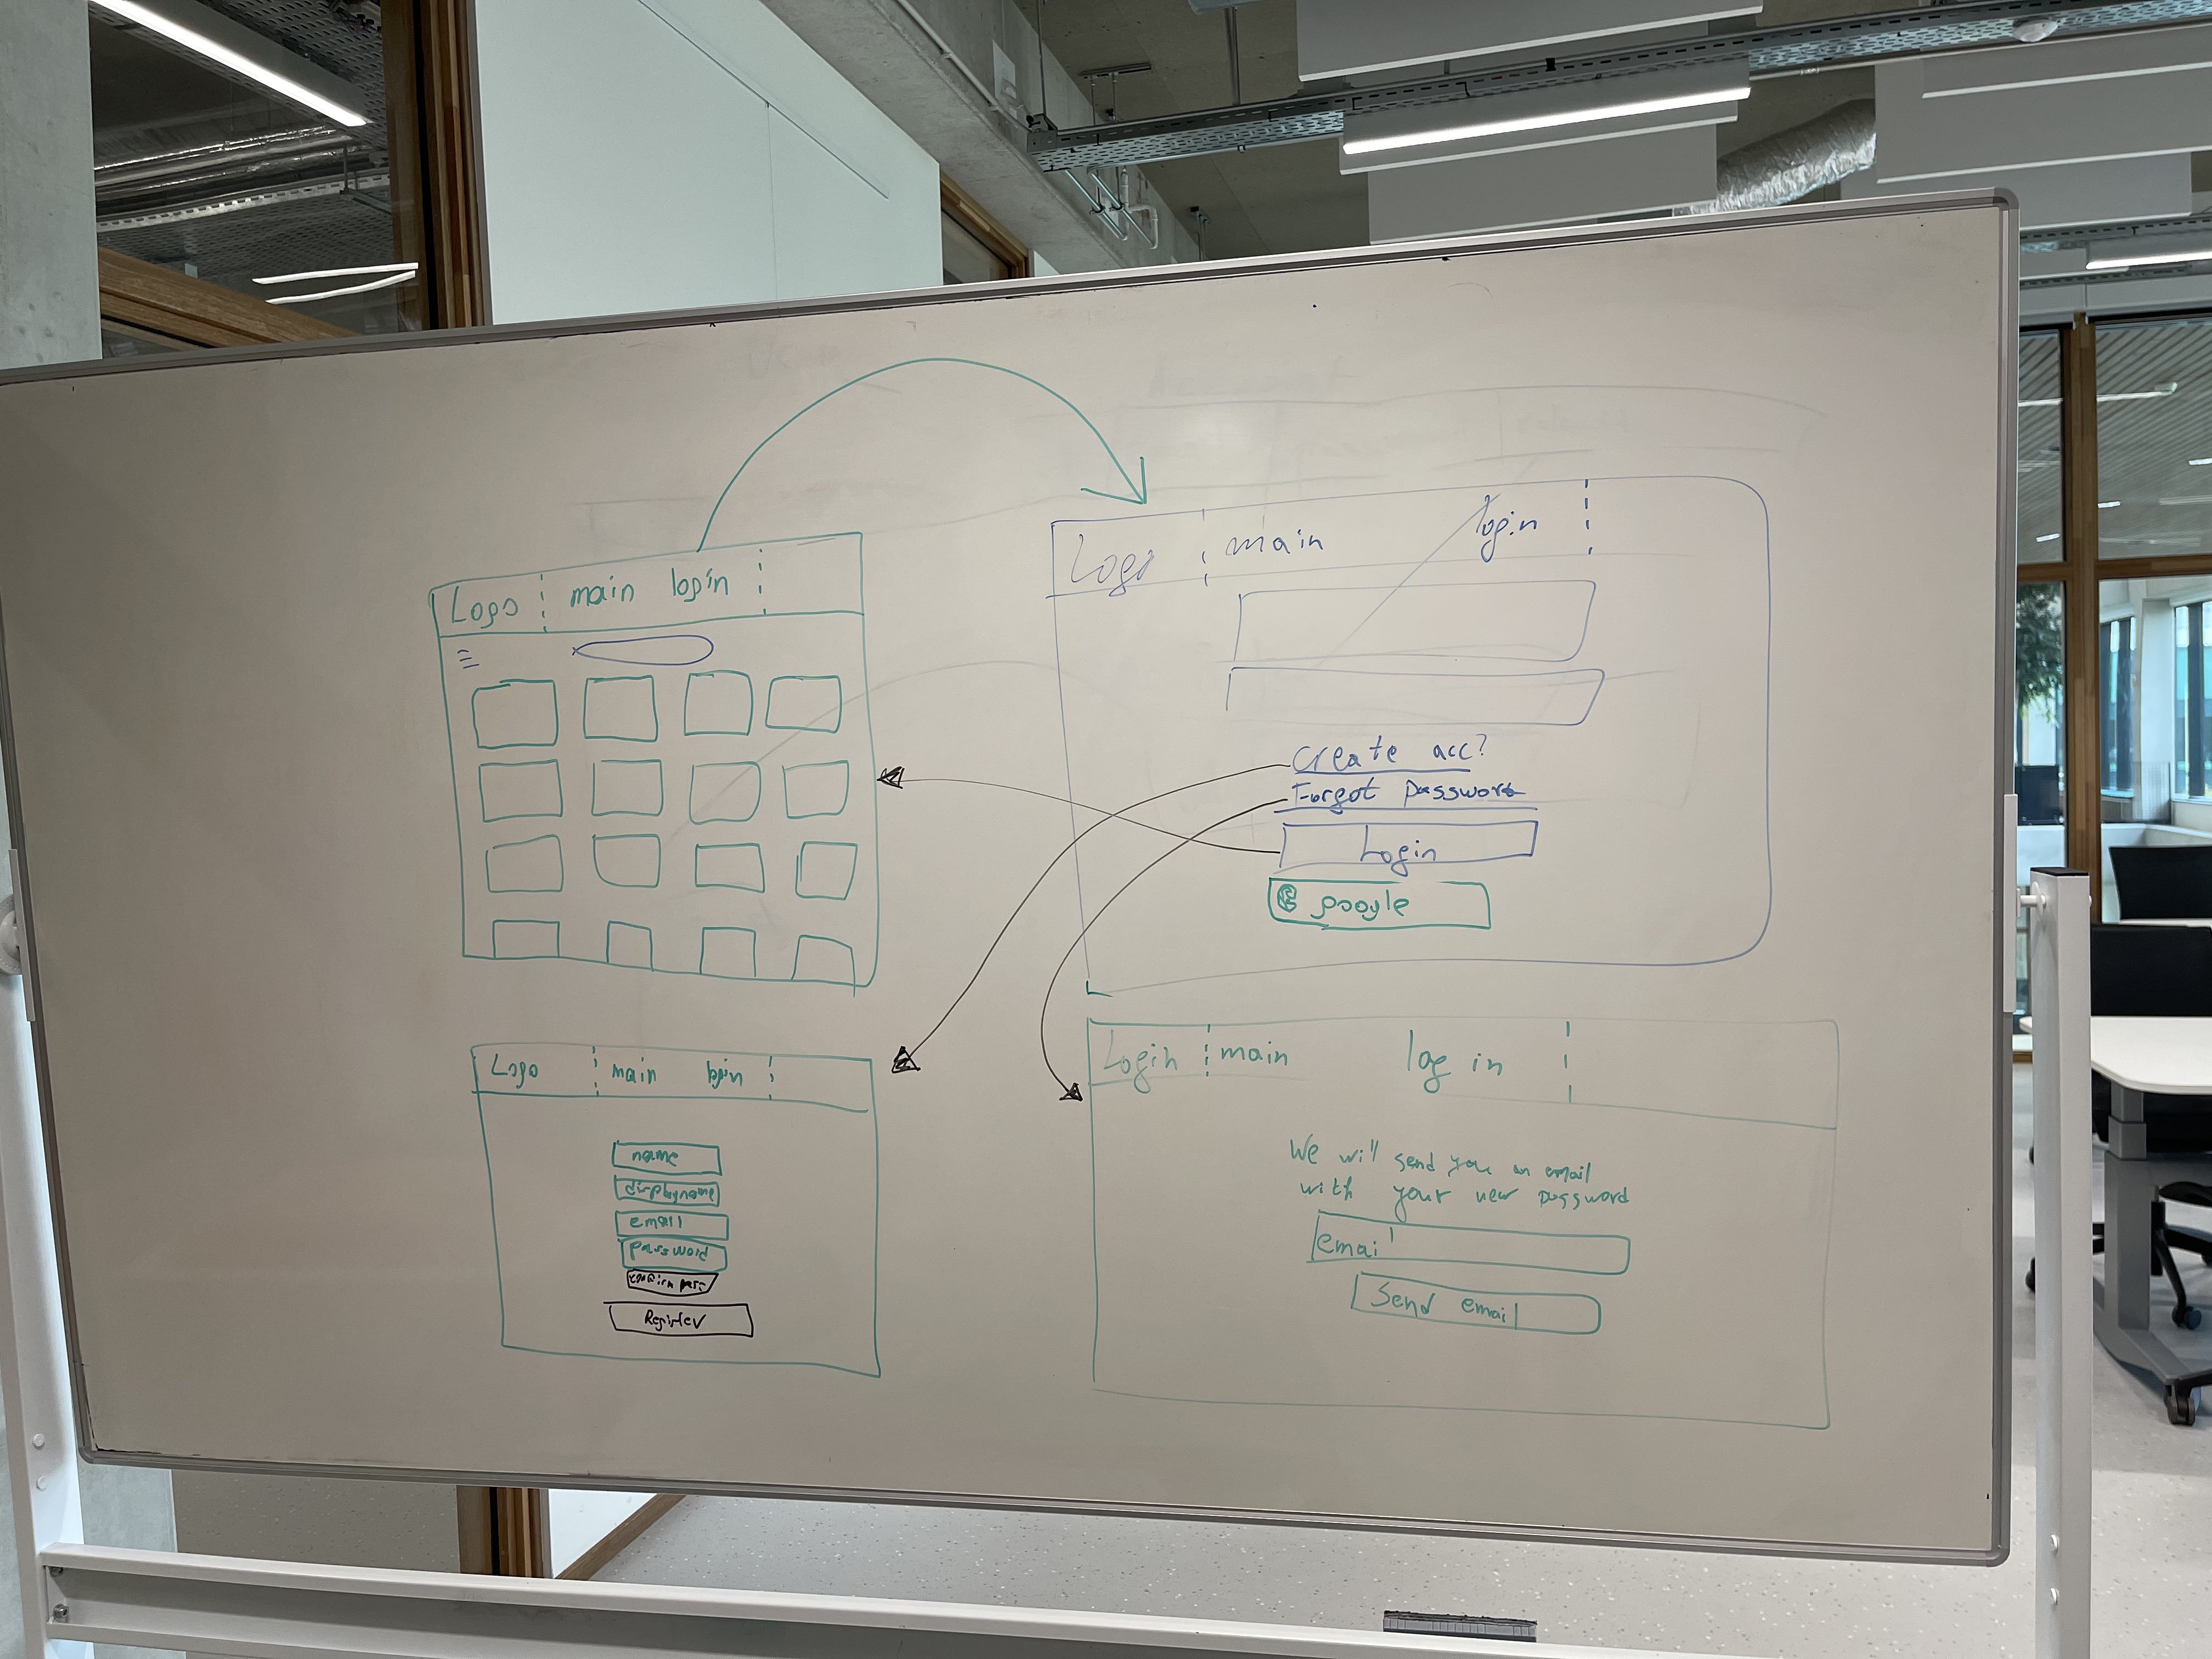 Logo main login
Logo main login
Create acc?
Forgot password
Login
google
Logo main login
name
displayname
email
password
confirm pass
Register
Login main log in
We will send you an email
with your new password
email
Send email